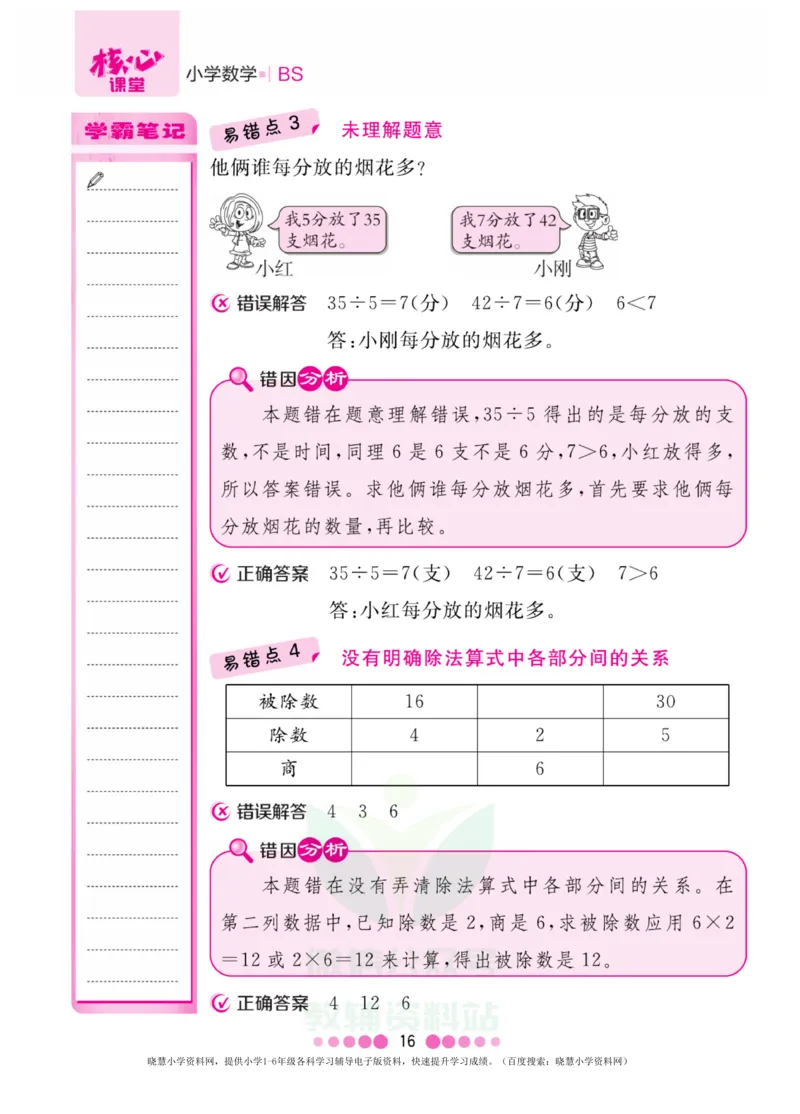 核心
课堂
小学数学 BS
学霸笔记
易错点 3 未理解题意
他俩谁每分放的烟花多?
我5分放了35
支烟花。
我7分放了42
支烟花。
小红
小刚
错误解答 35÷5=7(分) 42÷7=6(分) 6<7
答:小刚每分放的烟花多。
错因分析
本题错在题意理解错误,35÷5 得出的是每分放的支
数,不是时间,同理 6 是 6 支不是 6 分,7>6,小红放得多,
所以答案错误。求他俩谁每分放烟花多,首先要求他俩每
分放烟花的数量,再比较。
正确答案 35÷5=7(支) 42÷7=6(支) 7>6
答:小红每分放的烟花多。
易错点 4 没有明确除法算式中各部分间的关系
被除数 16 30
除数 4 2 5
商 6
错误解答 4 3 6
错因分析
本题错在没有弄清除法算式中各部分间的关系。在
第二列数据中,已知除数是 2,商是 6,求被除数应用 6×2
=12 或 2×6=12 来计算,得出被除数是 12。
正确答案 4 12 6
教辅资料站
16
晓慧小学资料网,提供小学1-6年级各科学习辅导电子版资料,快速提升学习成绩。(百度搜索:晓慧小学资料网)